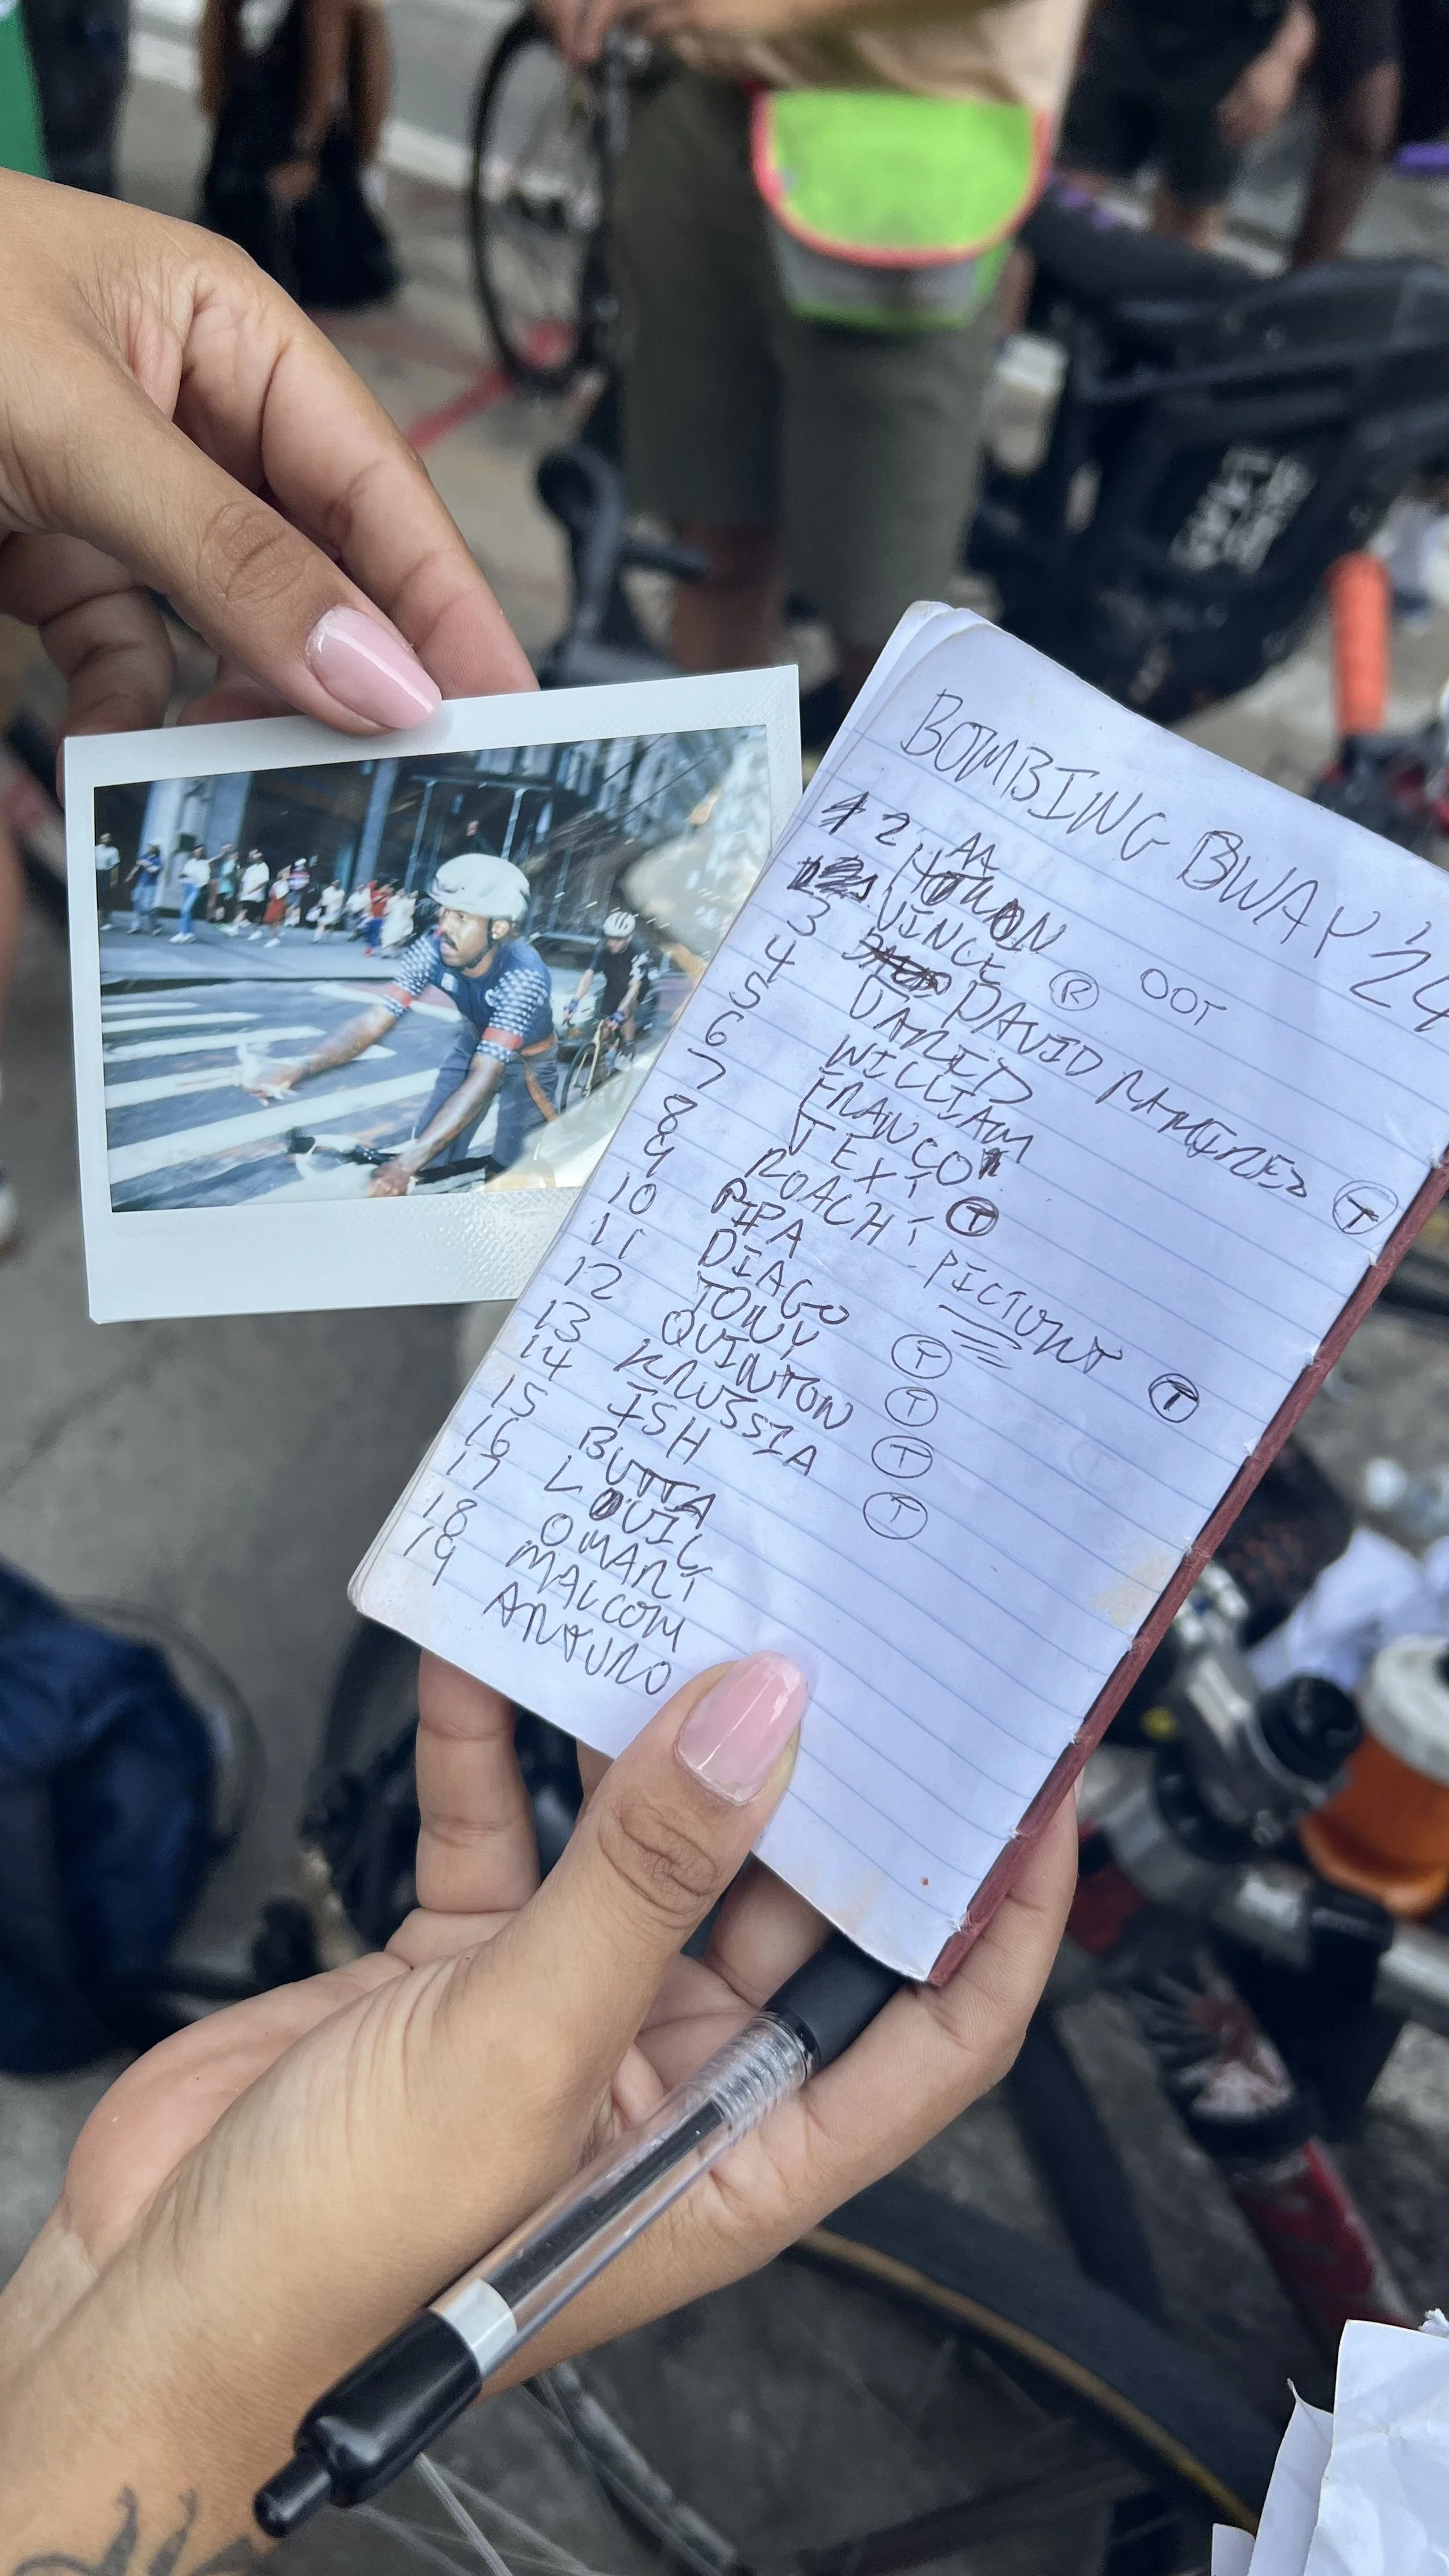 BOMBING BWAY '24
AA
HAKON
VINCE Ⓡ OOT
3 DAVID RAMIREZ Ⓣ
4 JARED
5 WILLIAM
6 FRANCO
7 Ⓣ
8 ROACH - PICTURE Ⓣ
9 PIPA
10 DIAGO Ⓣ
11 TONY Ⓣ
12 QUINTON Ⓣ
13 KRUSSIA Ⓣ
14 ISH
15 BUTTA
16 LOUIE
17 OMARI
18 MALCOM
19 ARTURO